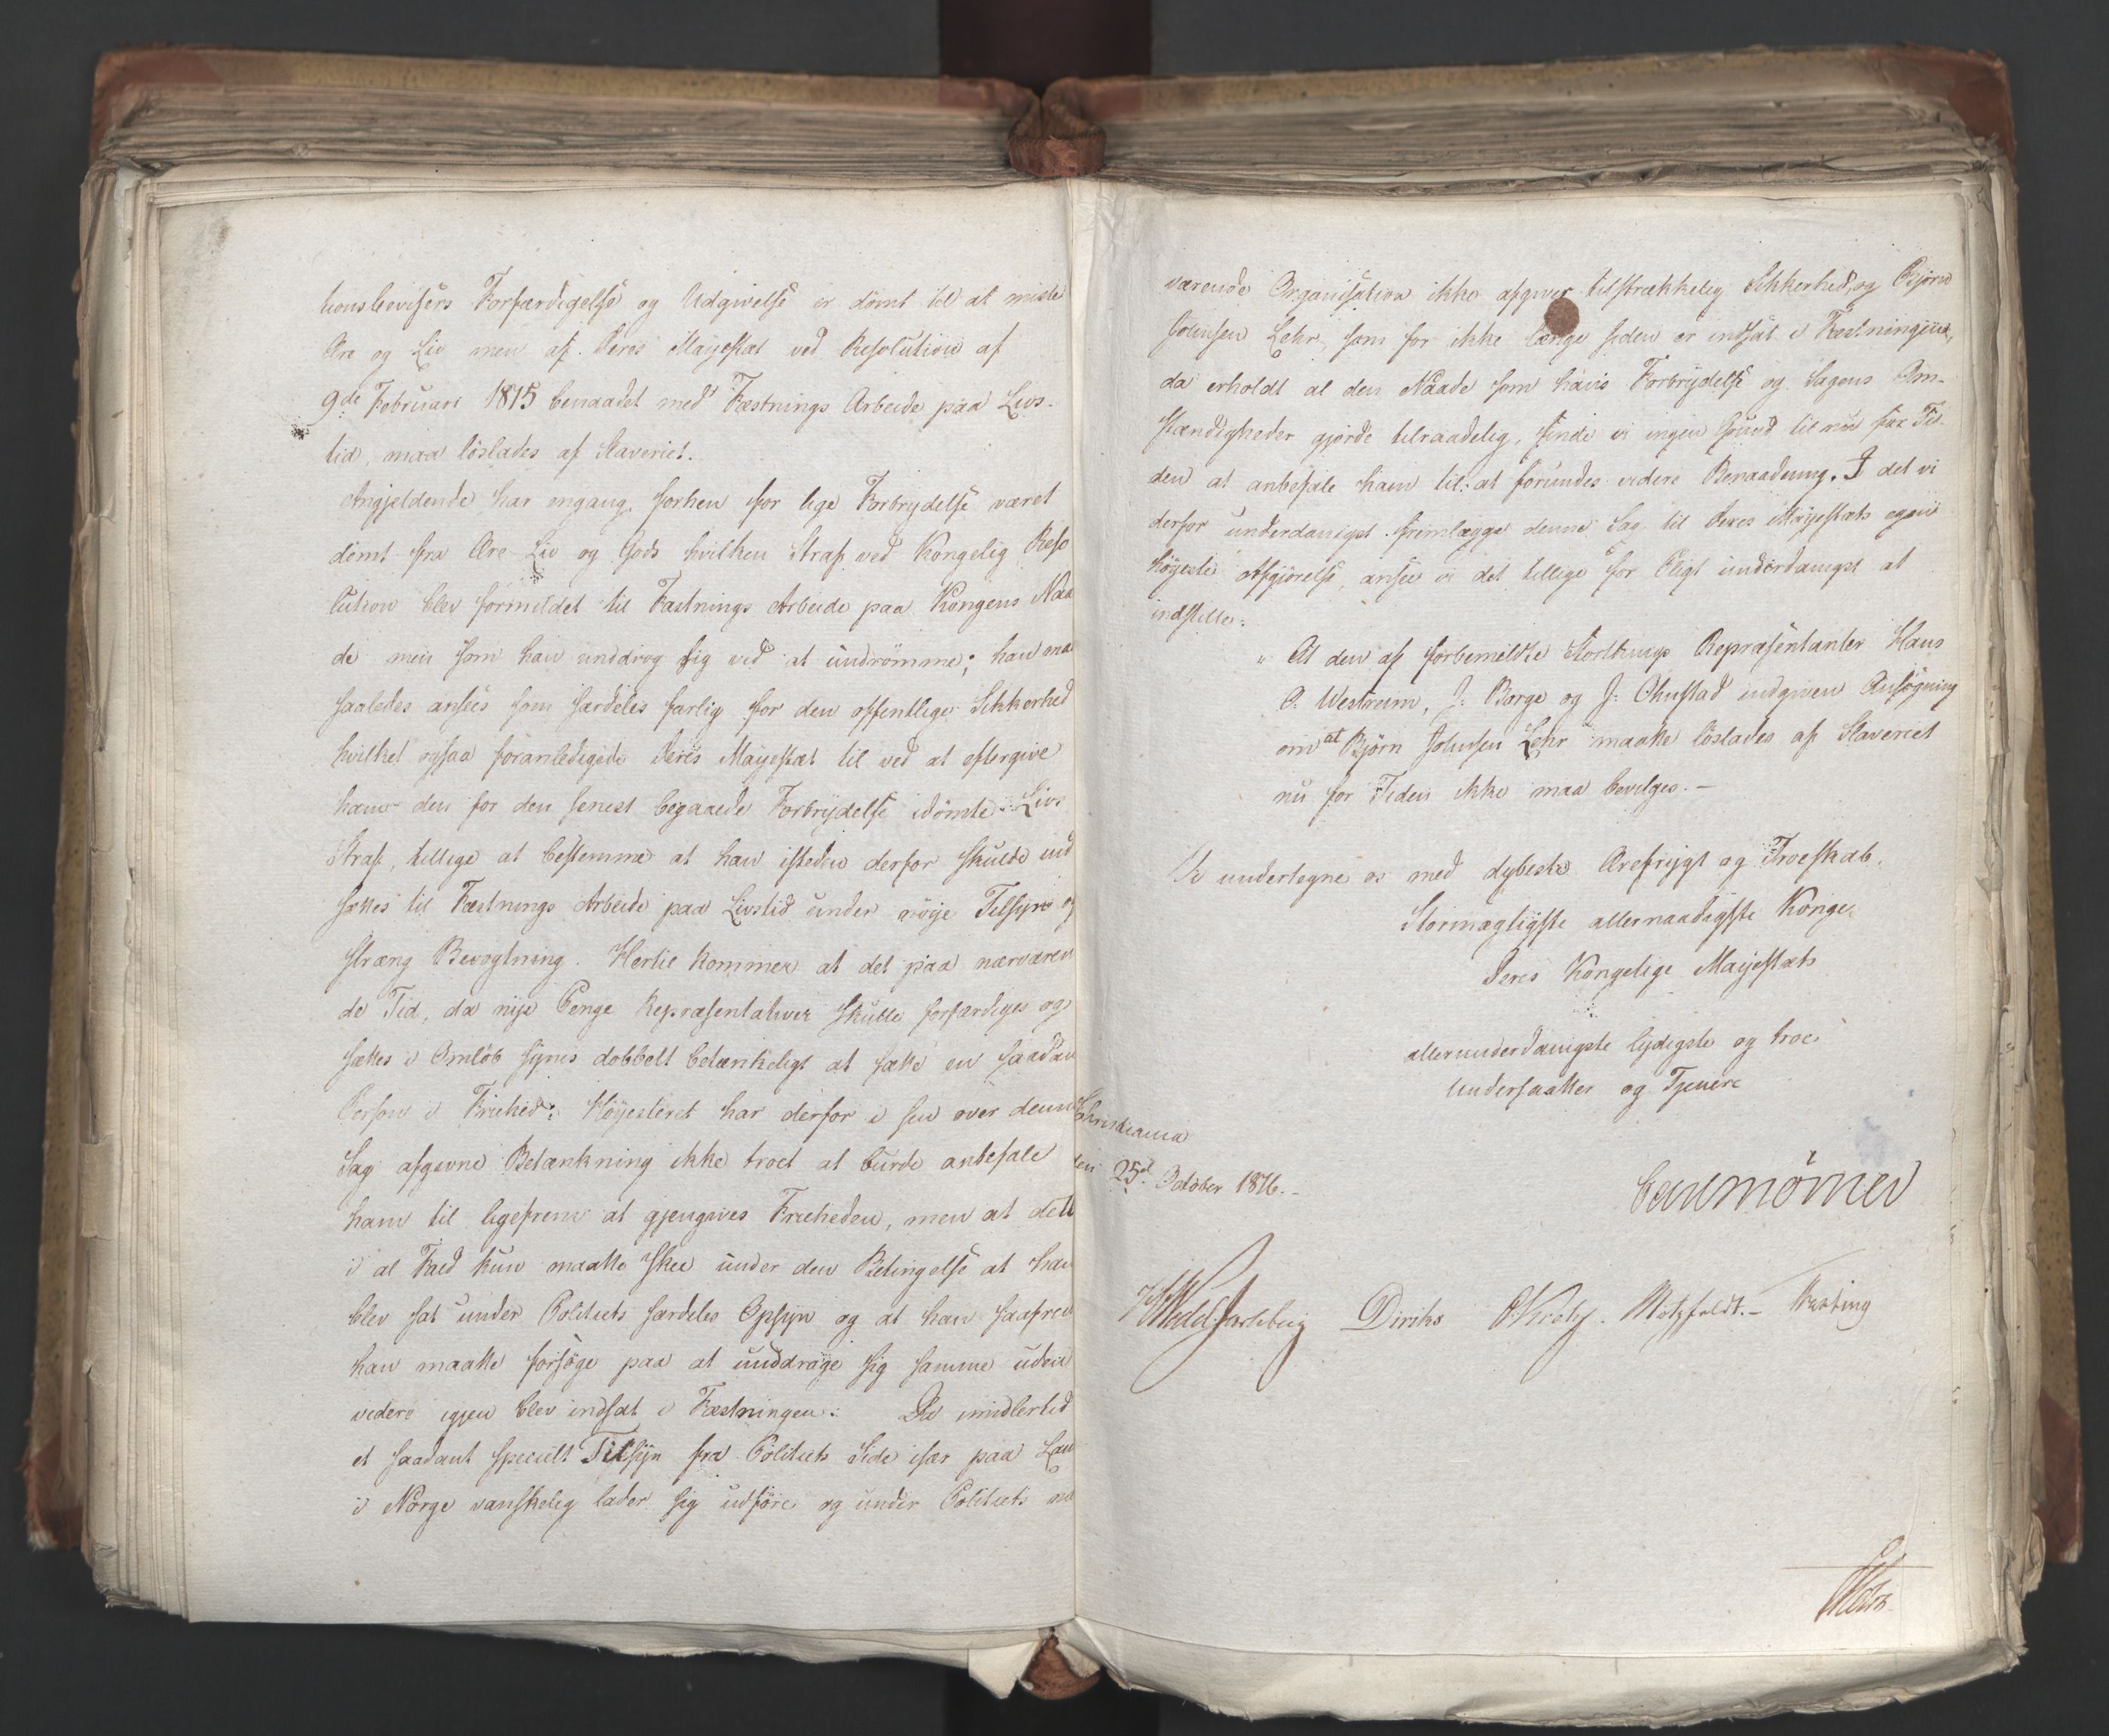 tionsbevisers Forfærdigelse og Udgivelse er dömt til at miste
Ære og Liv men af Deres Mayestæt ved Resolution af
9de Februari 1815 benaadet med Fæstnings Arbeide paa Livs-
tid, maa löslades af Slaveriet.
Angjeldende har engang forhen for lige Forbrydelse været
dömt fra Ære Liv og Gods hvilken Straf ved Kongelig Reso
lution blev formildet til Fæstnings Arbeide paa Kongens Naa
de men som han unddrog sig ved at undrömme; han maa
saaledes ansees som særdeles farlig for den offentlige Sikkerhed
hvilket ogsaa foranledigede Deres Mayestæt til ved at eftergive
ham den for den senest begaaede Forbrydelse idömte Livs
Straf, tillige at bestemme at han isteden derfor skulde ind
sættes til Fæstnings Arbeide paa Livstid under nöye Tilsyn og
stræng Bevogtning. Hertil kommer at det paa nærværen
de Tid, da nye Penge Repræsentativer skulle forfærdiges og
sættes i Omlöb synes dobbelt betænkeligt at sætte en saadan
Person i Friehed: Höyesteret har derfor i sin over denne
Sag afgivne Betænkning ikke troet at burde anbefale
ham til ligefrem at gjengives Frieheden, men at dett
i al Fald kun maatte skee under den Betingelse at han
blev sat under Politiets særdeles Opsyn og at han saafrem
han maatte forsöge paa at unddrage sig samme uden
videre igjen blev indsat i Fæstningen: Da imidlertid
et saadant specielt Tilsyn fra Politiets Side især paa Lan
i Norge vanskelig lader sig udföre og under Politiets nu
værende Organisation ikke afgiver tilstrækkelig Sikkerhed, og Björn
Johnsen Lehr, som for ikke længe siden er indsat i Fæstningen,
da erholdt al den Naade som hans Forbrydelse og Sagens Om-
stændigheder gjorde tilraadelig, finde vi ingen Grund til nu for Ti-
den at anbefale ham til at forundes videre Benaadning. I det vi
derfor underdanigst fremlægge denne Sag til Deres Mayestæts egen
höyeste Afgjörelse, ansee vi det tillige for Pligt underdanigst at
indstille:
" At den af forbemeldte Storthings Repræsentanter Hans
O. Westrum, J: Borge og J: Ohnstad indgiven Ansögning
om at Björn Johnsen Lehr maatte löslades af Slaveriet
nu for Tiden ikke maa bevilges. —
Vi undertegne os med dybeste Ærefrygt og Troeskab.
Stormægtigste allernaadigste Konge
Deres Kongelige Mayestæts
allerunderdanigste lydigste og troe
Undersaatter og Tjenere
Christiania
den 25d October 1816. -
Carl Mörner
Wedel Jarlsberg Diriks Krohg. Motzfeldt. - Hasting